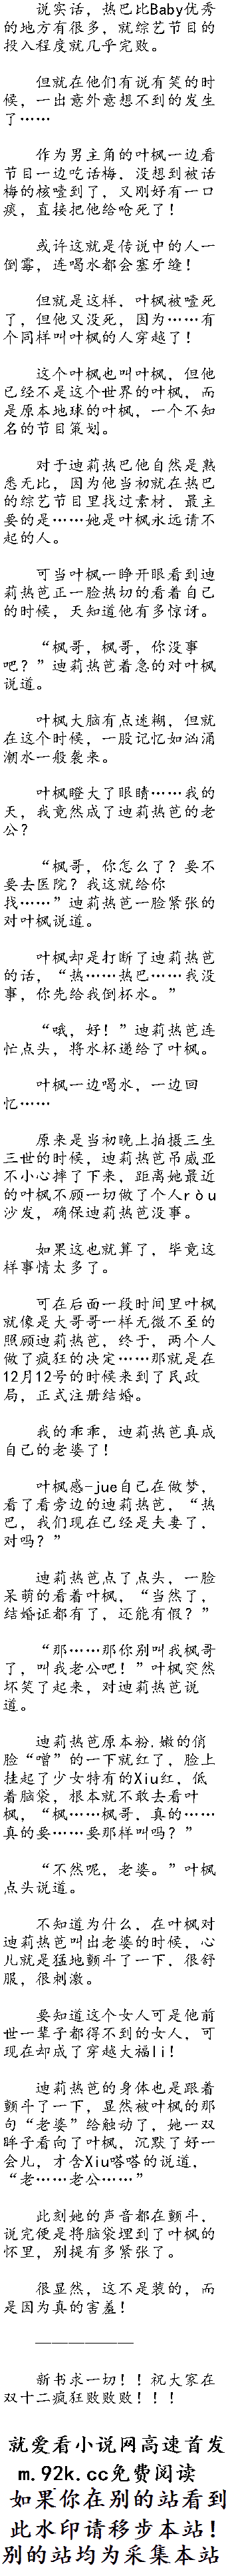 说实话，热巴比Baby优秀
的地方有很多，就综艺节目的
投入程度就几乎完败。
但就在他们有说有笑的时
候，一出意外意想不到的发生
了……
作为男主角的叶枫一边看
节目一边吃话梅，没想到被话
梅的核噎到了，又刚好有一口
痰，直接把他给呛死了！
或许这就是传说中的人一
倒霉，连喝水都会塞牙缝！
但就是这样，叶枫被噎死
了，但他又没死，因为……有
个同样叫叶枫的人穿越了！
这个叶枫也叫叶枫，但他
已经不是这个世界的叶枫，而
是原本地球的叶枫，一个不知
名的节目策划。
对于迪莉热巴他自然是熟
悉无比，因为他当初就在热巴
的综艺节目里找过素材，最主
要的是……她是叶枫永远请不
起的人。
可当叶枫一睁开眼看到迪
莉热芭正一脸热切的看着自己
的时候，天知道他有多惊讶。
“枫哥，枫哥，你没事
吧？”迪莉热芭着急的对叶枫
说道。
叶枫大脑有点迷糊，但就
在这个时候，一股记忆如汹涌
潮水一般袭来。
叶枫瞪大了眼睛……我的
天，我竟然成了迪莉热芭的老
公？
“枫哥，你怎么了？要不
要去医院？我这就给你
找……”迪莉热芭一脸紧张的
对叶枫说道。
叶枫却是打断了迪莉热芭
的话，“热……热巴……我没
事，你先给我倒杯水。”
“哦，好！”迪莉热芭连
忙点头，将水杯递给了叶枫。
叶枫一边喝水，一边回
忆……
原来是当初晚上拍摄三生
三世的时候，迪莉热芭吊威亚
不小心摔了下来，距离她最近
的叶枫不顾一切做了个人ròu
沙发，确保迪莉热芭没事。
如果这也就算了，毕竟这
样事情太多了。
可在后面一段时间里叶枫
就像是大哥哥一样无微不至的
照顾迪莉热芭，终于，两个人
做了疯狂的决定……那就是在
12月12号的时候来到了民政
局，正式注册结婚。
我的乖乖，迪莉热芭真成
自己的老婆了！
叶枫感-jue自己在做梦，
看了看旁边的迪莉热芭，“热
巴，我们现在已经是夫妻了，
对吗？”
迪莉热芭点了点头，一脸
呆萌的看着叶枫，“当然了，
结婚证都有了，还能有假？”
“那……那你别叫我枫哥
了，叫我老公吧！”叶枫突然
坏笑了起来，对迪莉热芭说
道。
迪莉热芭原本粉.嫩的俏
脸“噌”的一下就红了，脸上
挂起了少女特有的Xiu红，低
着脑袋，根本就不敢去看叶
枫，“枫……枫哥，真的……
真的要……要那样叫吗？”
“不然呢，老婆。”叶枫
点头说道。
不知道为什么，在叶枫对
迪莉热芭叫出老婆的时候，心
儿就是猛地颤斗了一下，很舒
服，很刺激。
要知道这个女人可是他前
世一辈子都得不到的女人，可
现在却成了穿越大福li！
迪莉热芭的身体也是跟着
颤斗了一下，显然被叶枫的那
句“老婆”给触动了，她一双
眸子看向了叶枫，沉默了好一
会儿，才含Xiu嗒嗒的说道，
“老……老公……”
此刻她的声音都在颤斗，
说完便是将脑袋埋到了叶枫的
怀里，别提有多紧张了。
很显然，这不是装的，而
是因为真的害羞！
——————
新书求一切！！祝大家在
双十二疯狂败败败！！！
就爱看小说网高速首发
m.92k.cc免费阅读
如果你在别的站看到
此水印请移步本站！
别的站均为采集本站